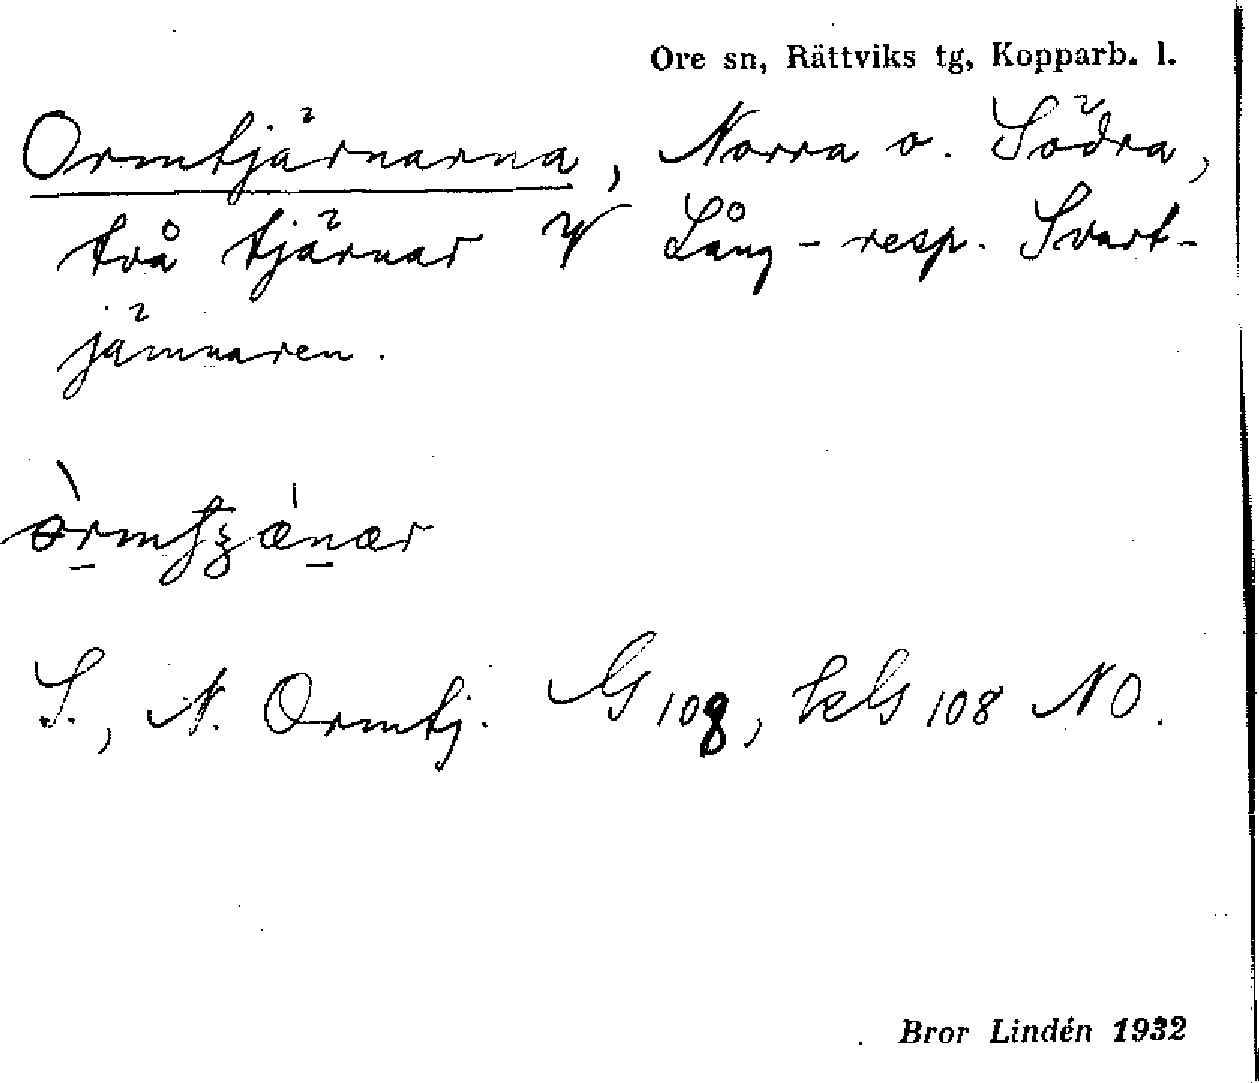 Ore sn, Rättviks tg, Kopparb. l.
Ormtjärnarna, Norra o. Södra,
två tjärnar V Lång- resp. Svart-
jämnaren.
S., N. Ormtj. G 108, kG 108 NO.
Bror Lindén 1932